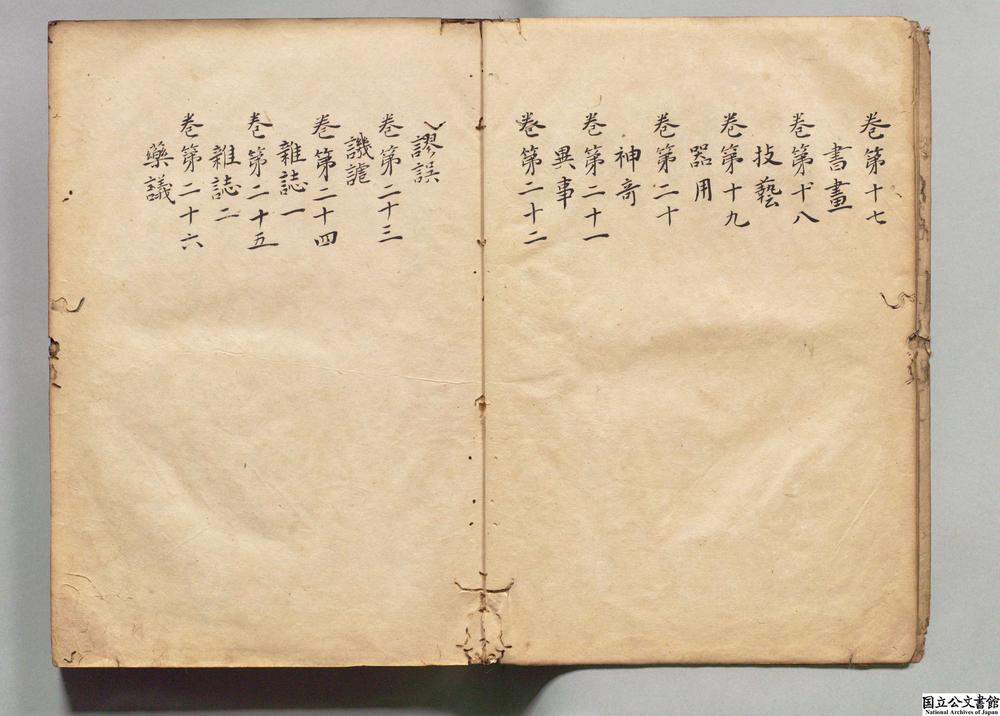 卷第十七
書畫
卷第十八
技藝
卷第十九
器用
卷第二十
神奇
卷第二十一
異事
卷第二十二
謬誤
卷第二十三
譏謔
卷第二十四
雜誌一
卷第二十五
雜誌二
卷第二十六
藥議
国立公文書館
National Archives of Japan